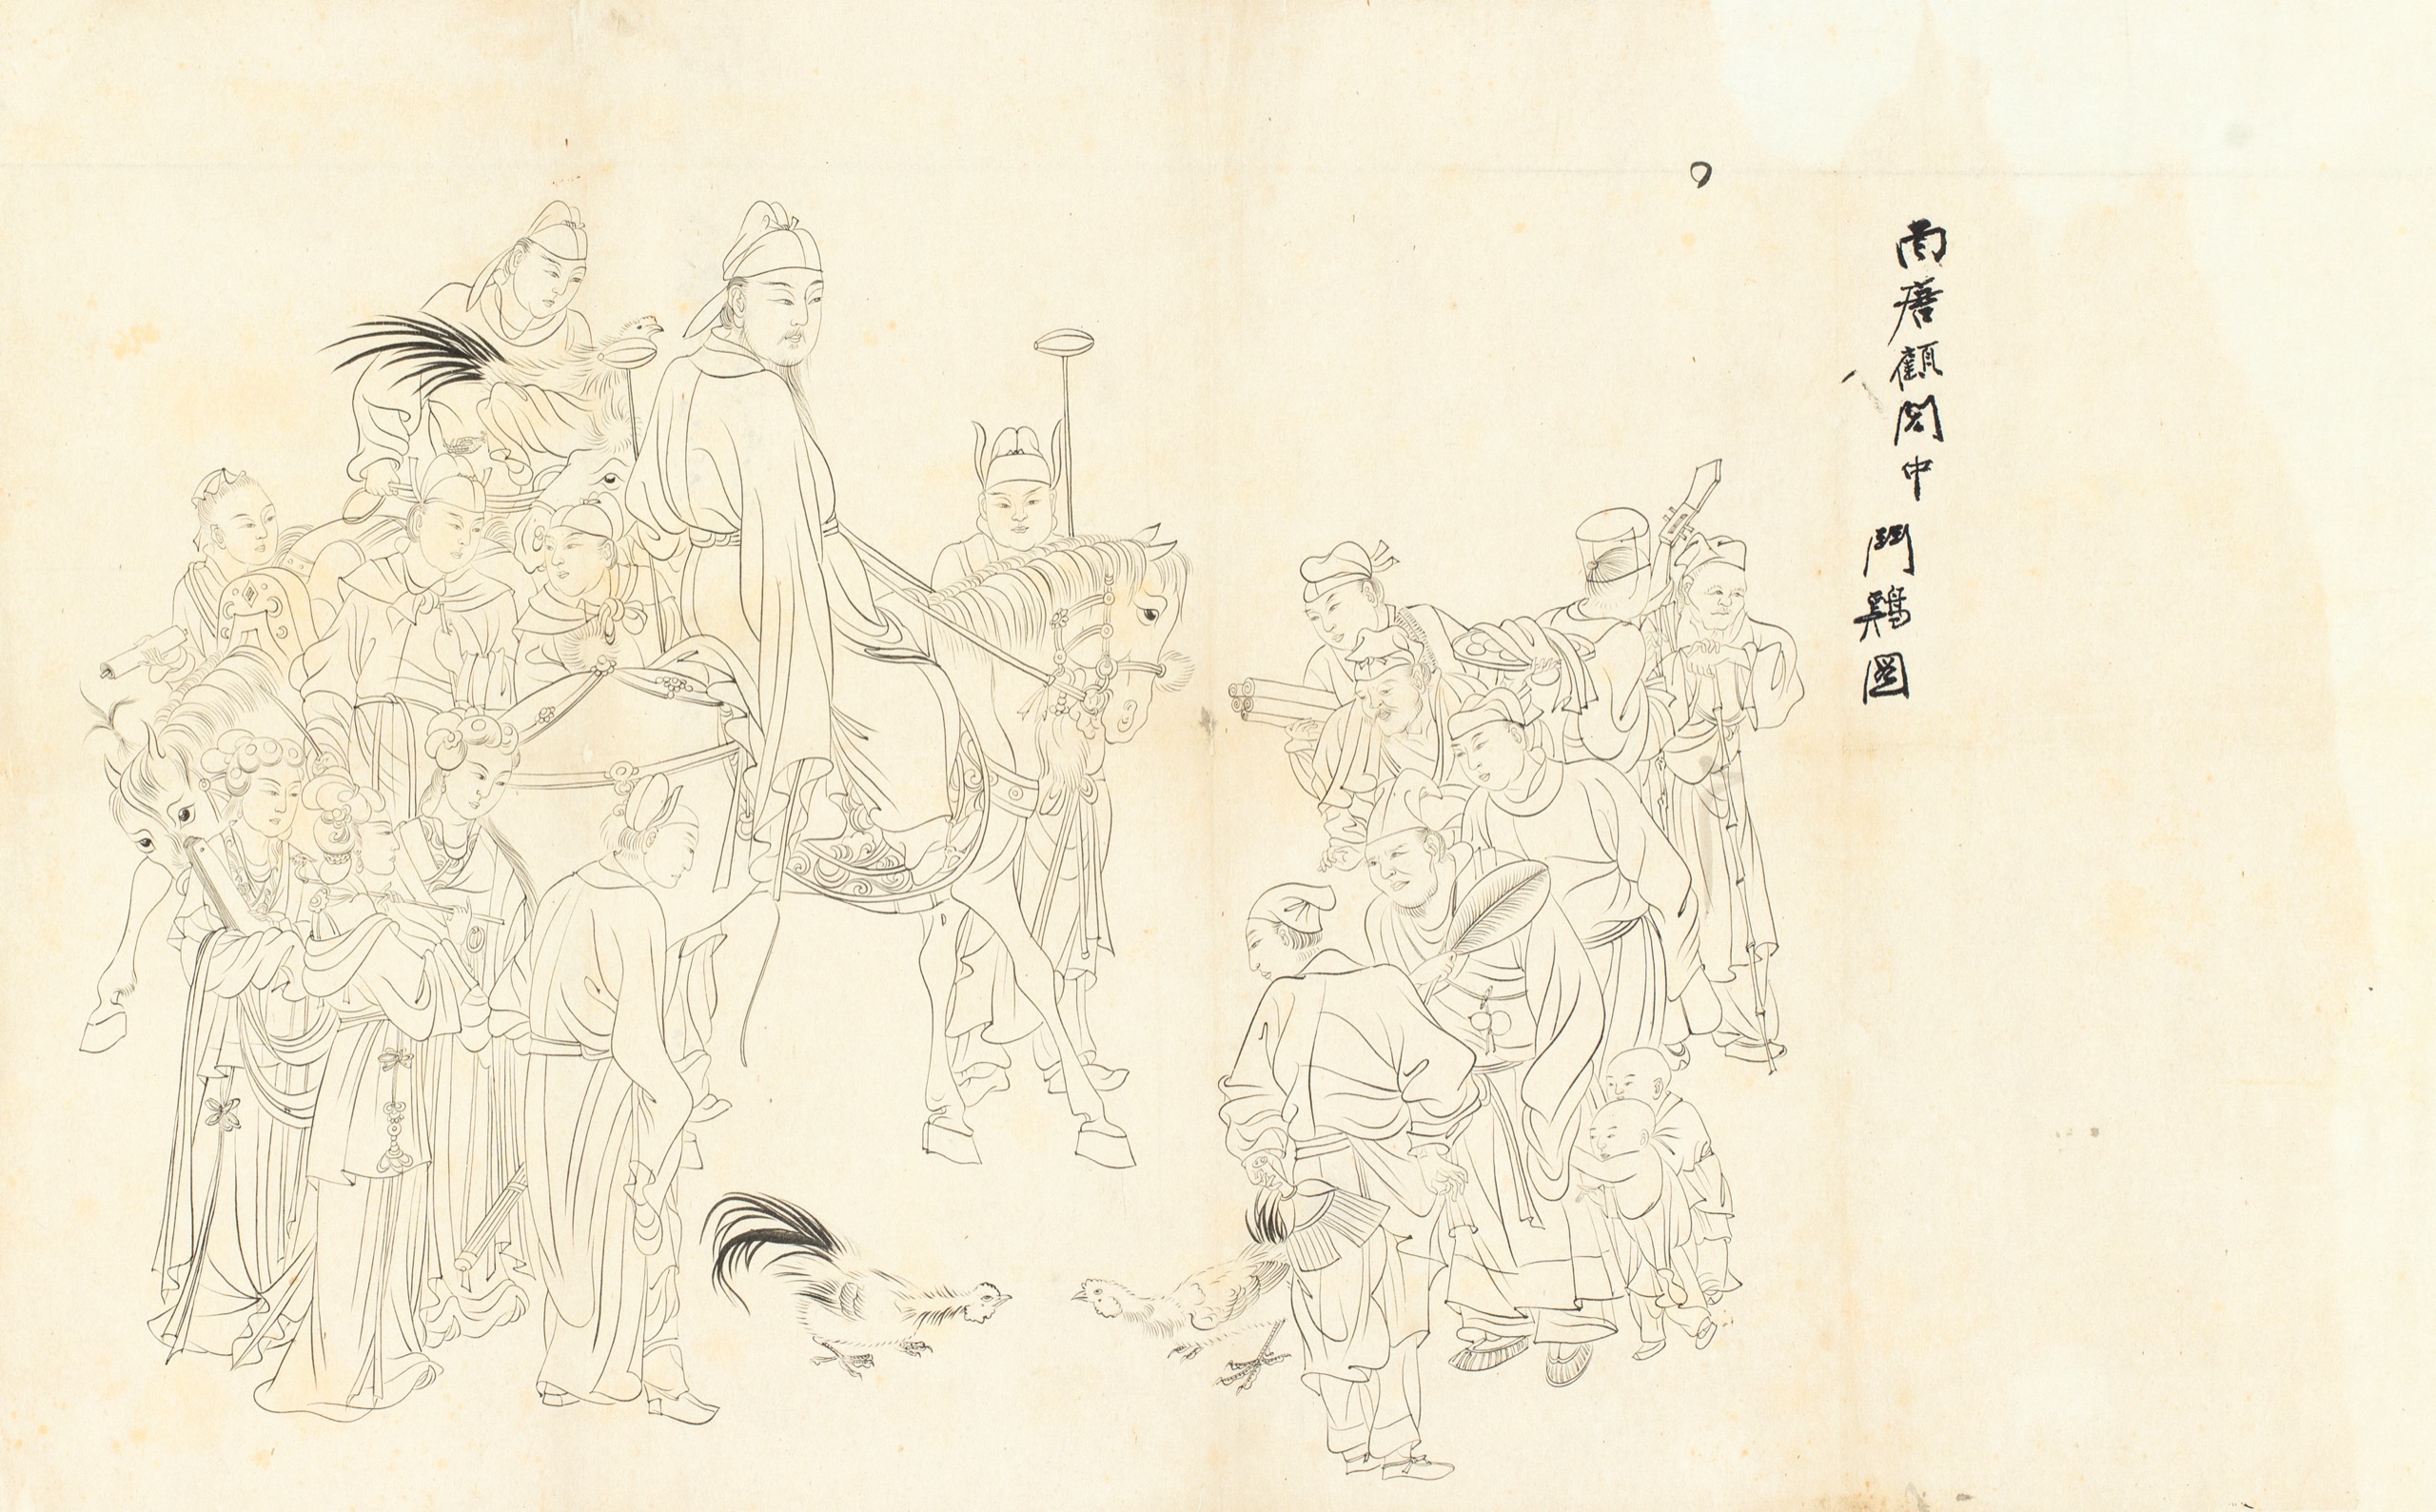 南唐顧閎中
鬥鷄圖